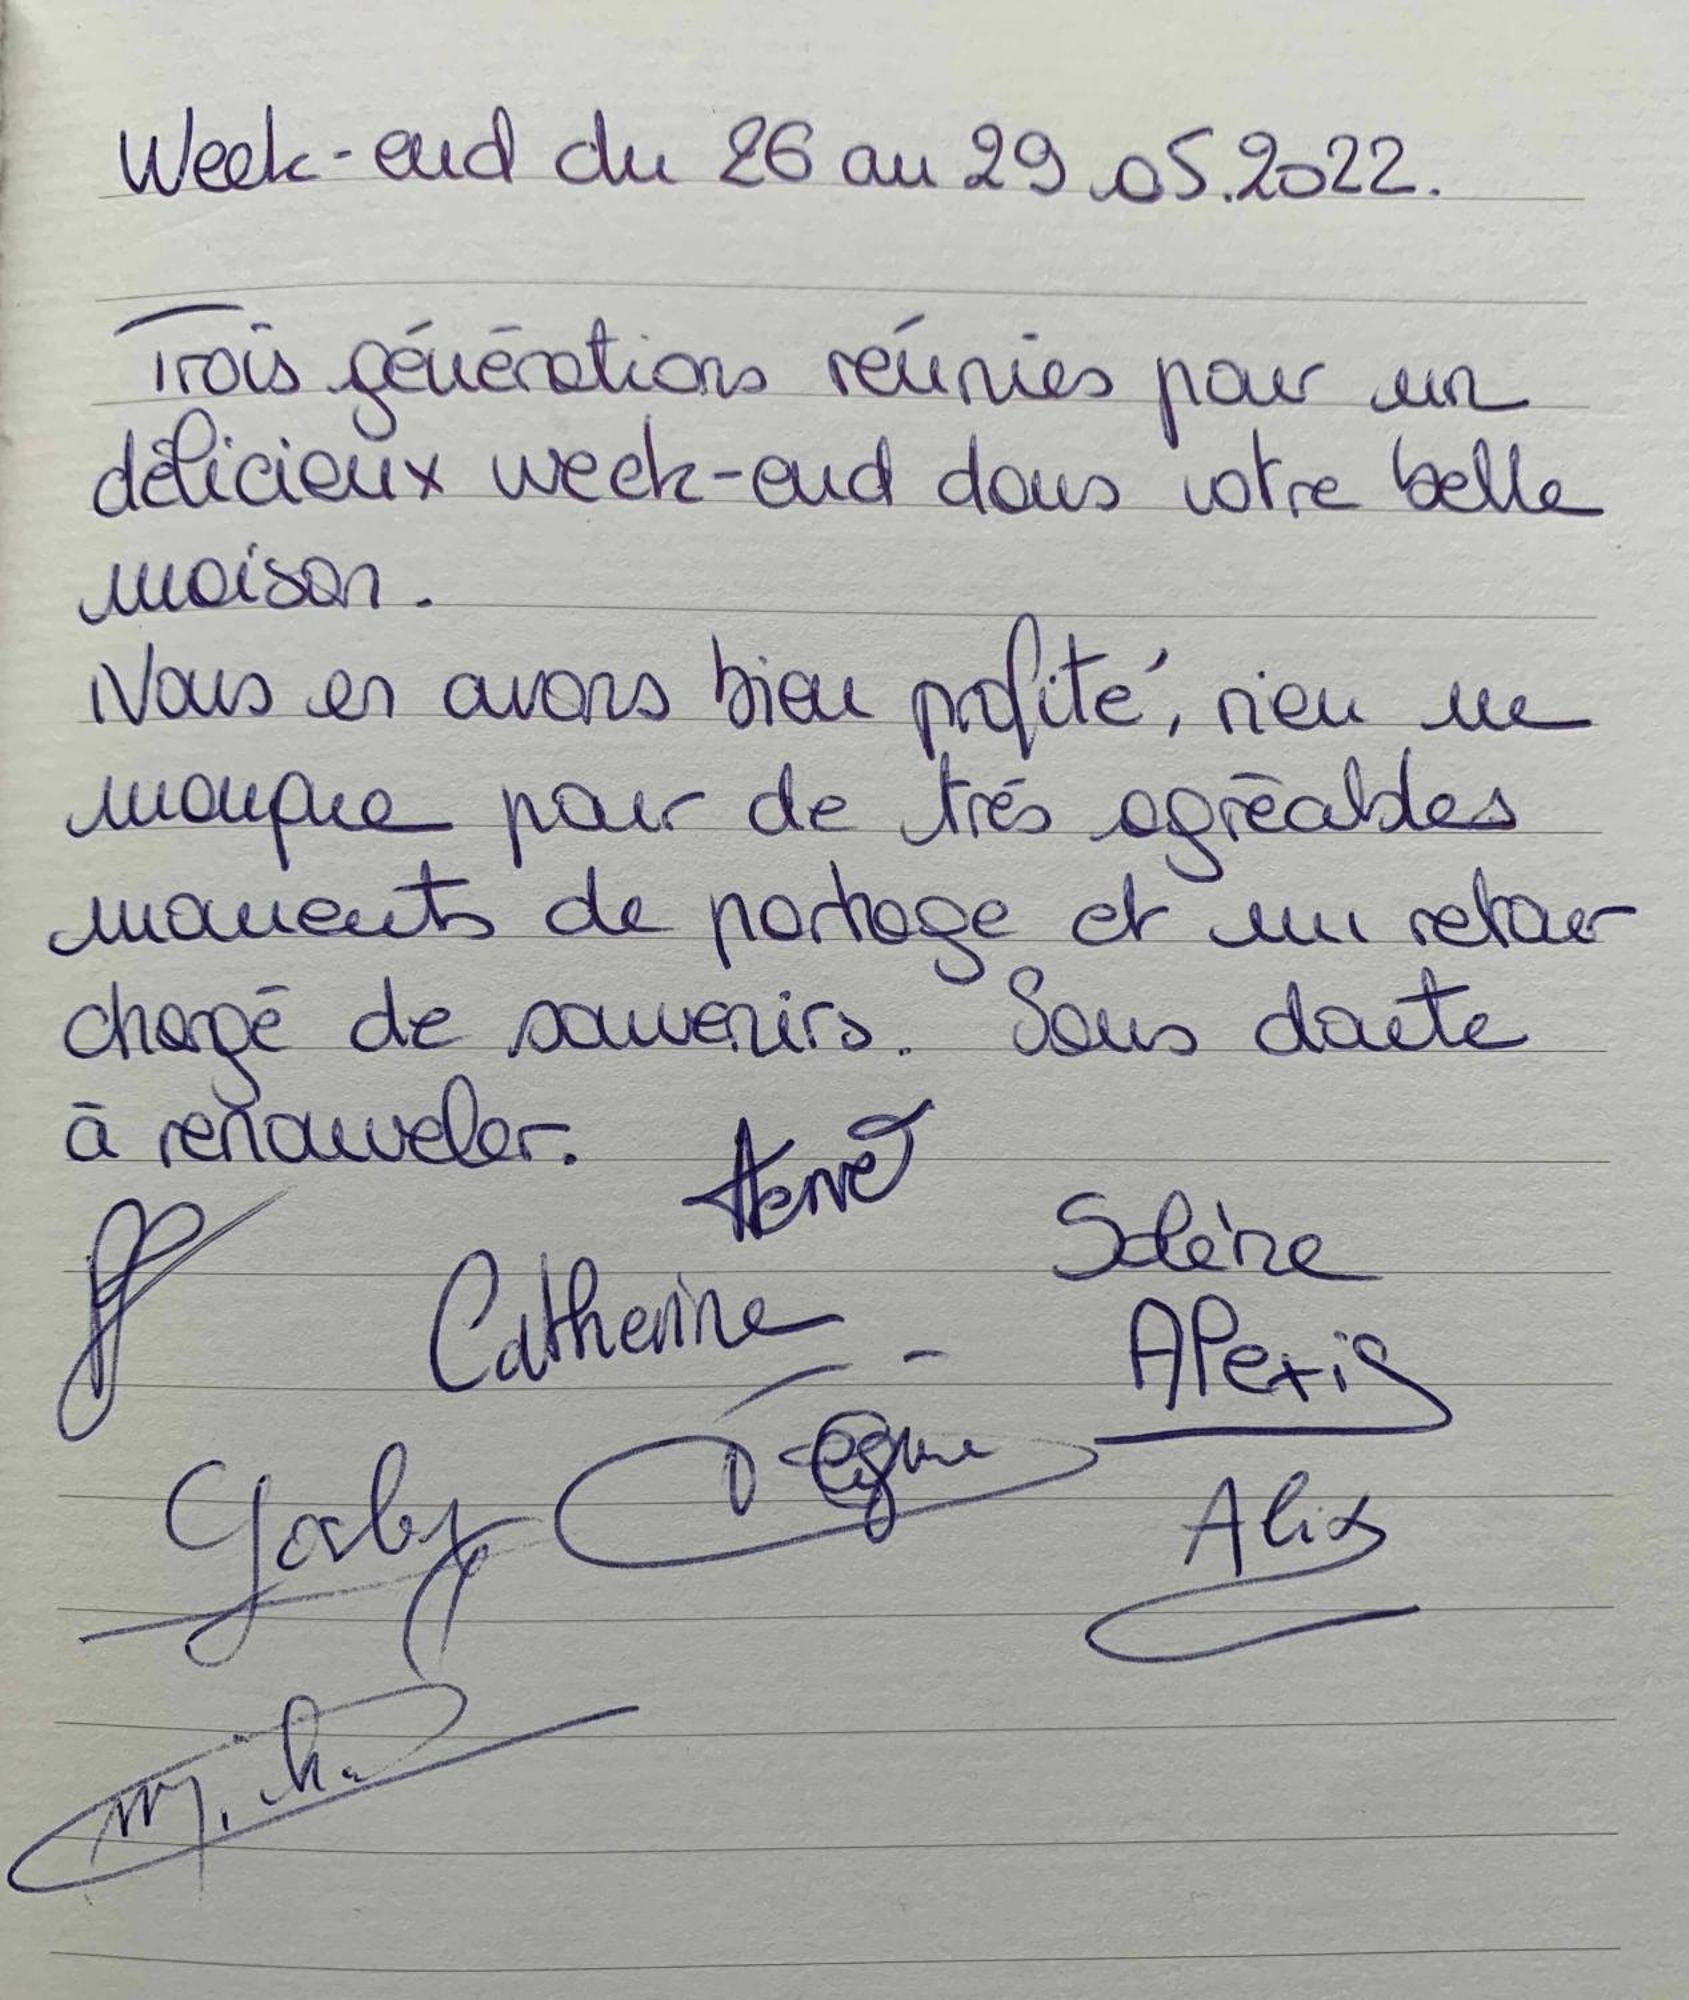 Week-end du 26 au 29.05.2022.
Trois générations réunies pour un
délicieux week-end dans votre belle
maison.
Nous en avons bien profité, rien ne
manque pour de très agréables
moments de partage et un retour
chargé de souvenirs. Sans doute
à renouveler.
Hervé
Solène
Catherine
Alexis
Alix